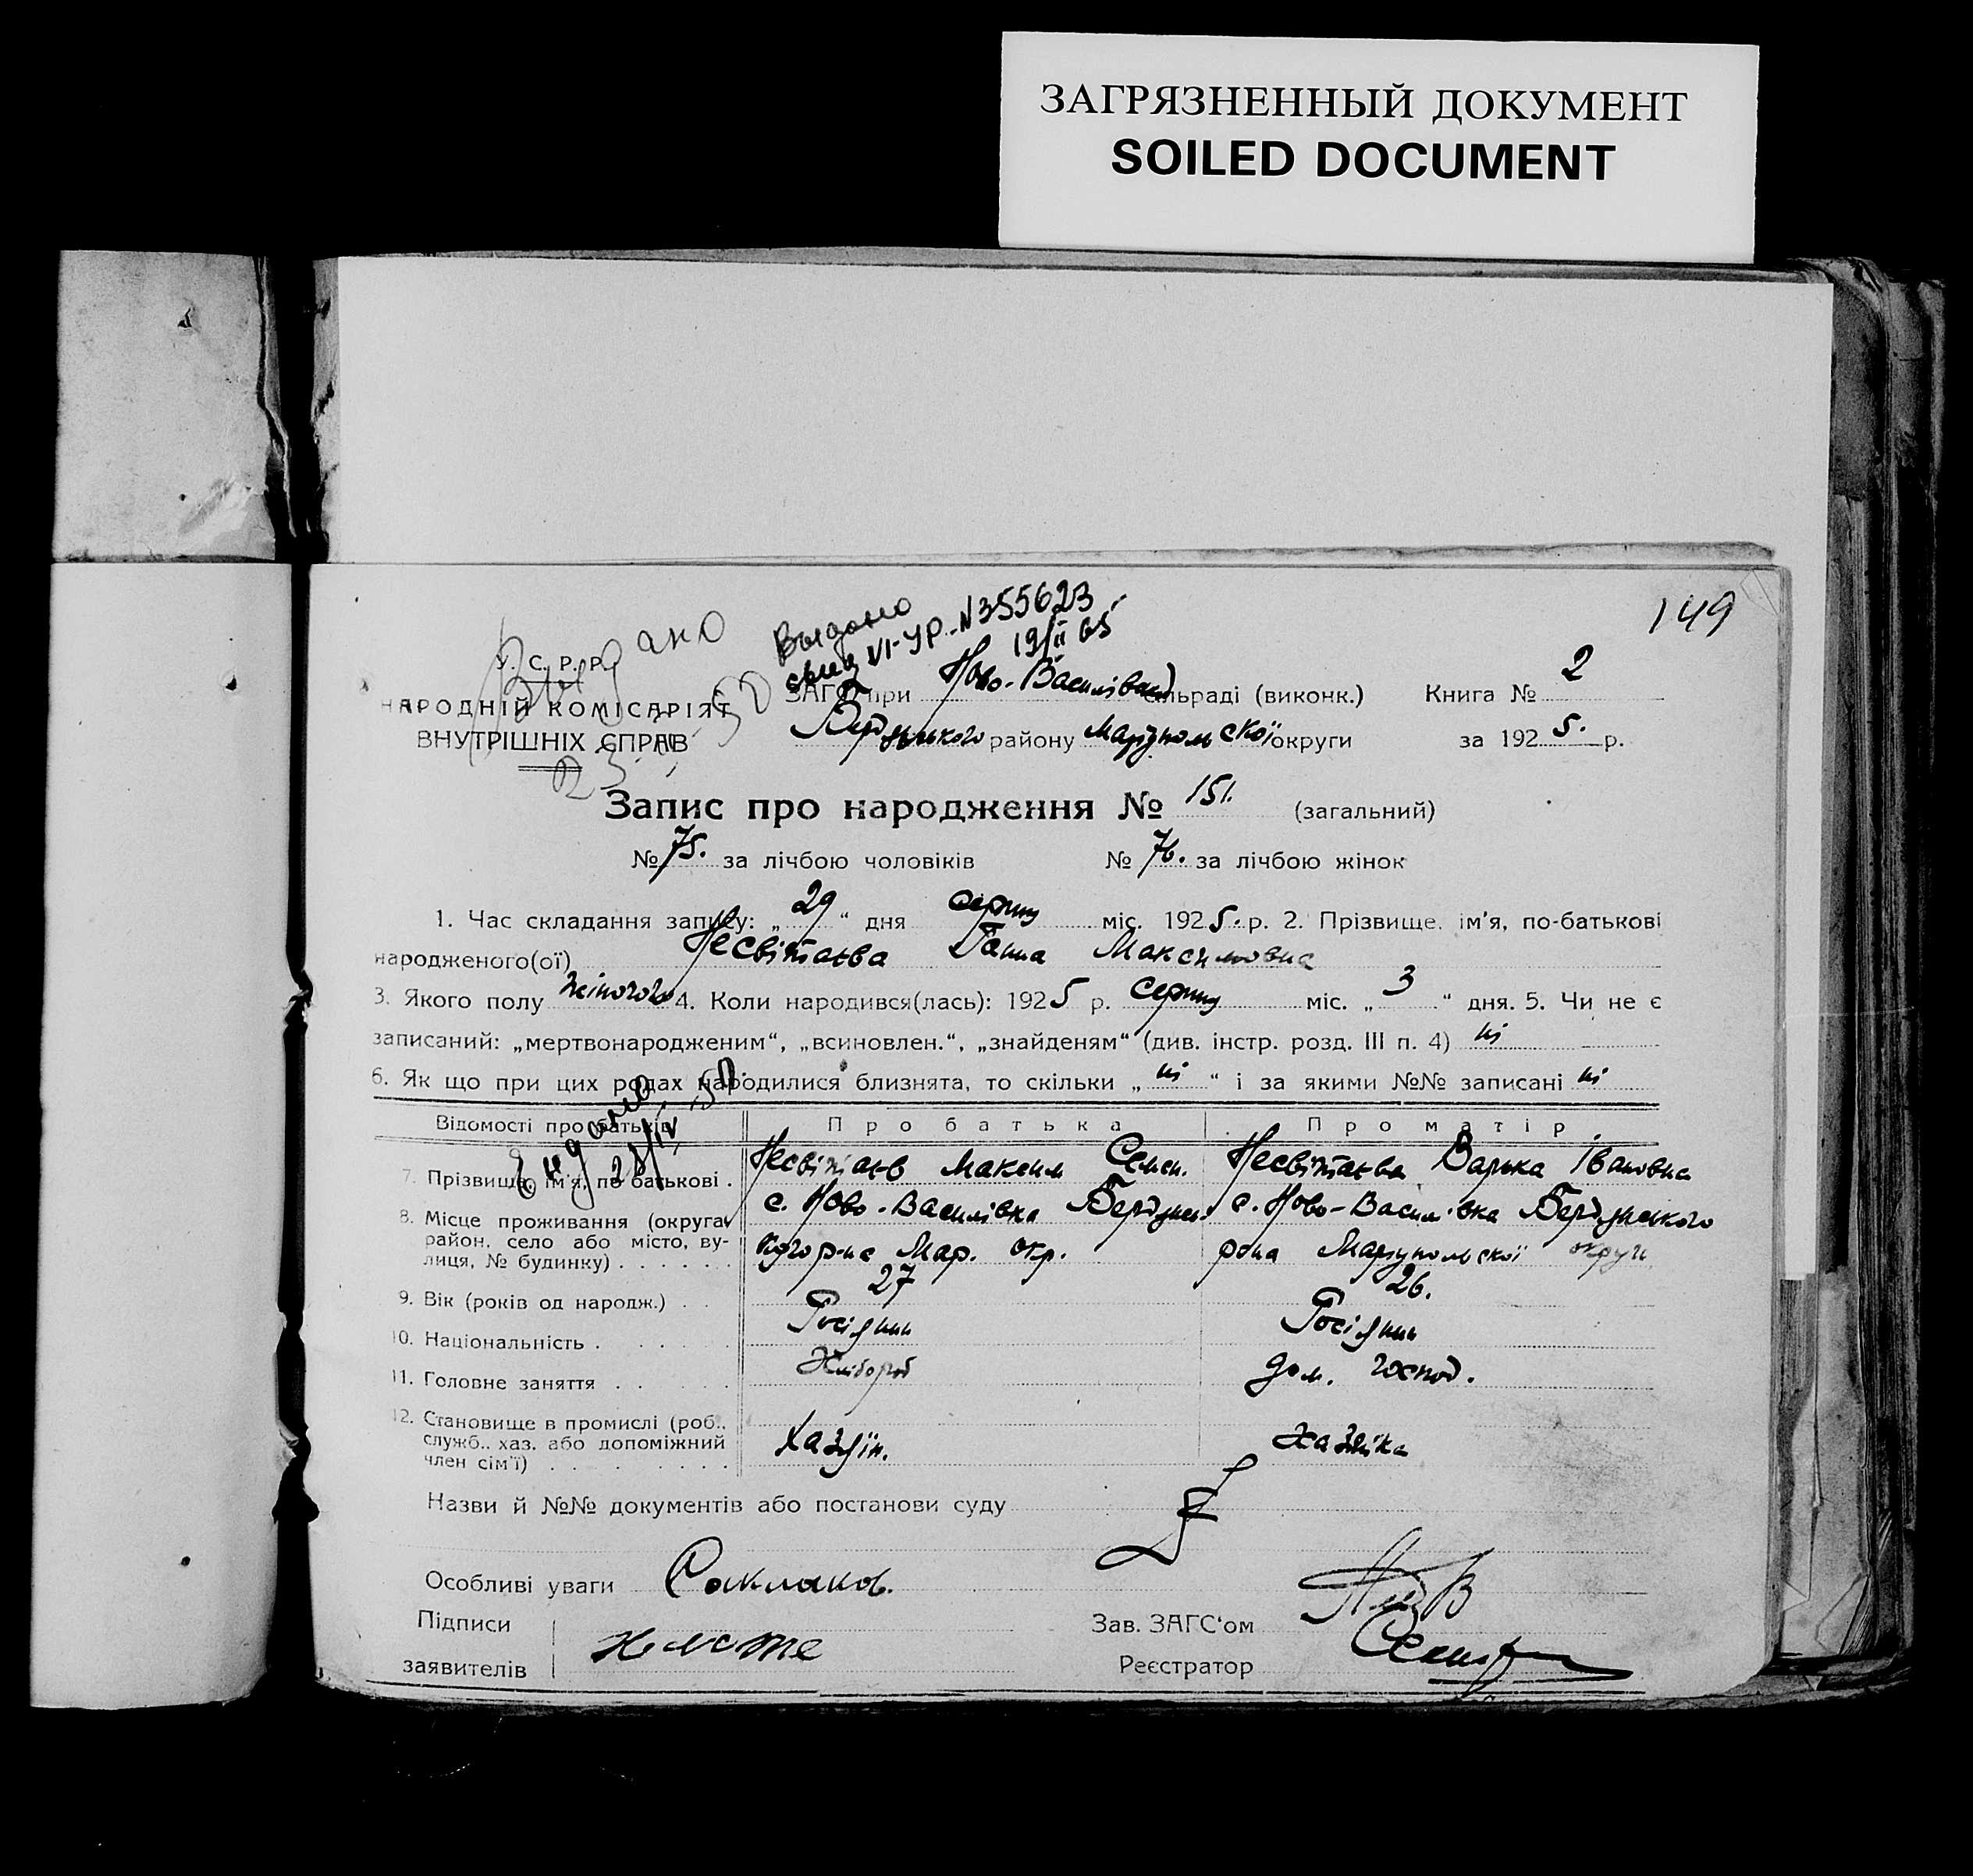 ЗАГРЯЗНЕННЫЙ ДОКУМЕНТ
SOILED DOCUMENT
149
Выдано
свид VI-УР. N355623
19/II 65
Видано
У. С. Р. Р.
НАРОДНІЙ КОМІСАРІЯТ
ВНУТРІШНІХ СПРАВ
ЗАГС при Ново-Василівській сільраді (виконк.) Книга № 2
Бердянського району Маріупольської округи за 1925. р.
Запис про народження № 151. (загальний)
№ 75. за лічбою чоловіків № 76. за лічбою жінок
1. Час складання запису: „29“ дня серпня міс. 1925. р. 2. Прізвище, ім'я, по-батькові
народженого(ої) Несвітаєва Ганна Максимовна
3. Якого полу жіночого 4. Коли народився(лась): 1925 р. серпня міс. „3“ дня. 5. Чи не є
записаний: „мертвонародженим“, „всиновлен.“, „знайденям“ (див. інстр. розд. III п. 4) ні
6. Як що при цих родах народилися близнята, то скільки „ні“ і за якими №№ записані ні
Видано
28/IV 50
Відомості про батьків Про батька Про матір
7. Прізвище, ім'я, по батькові . Несвітаєв Максим Семен. Несвітаєва Варька Івановна
8. Місце проживання (округа, район, село або місто, вулиця, № будинку) . . . . . . с. Ново-Василівка Бердянського р-на Мар. окр. с. Ново-Василівка Бердянського рона Маріупольської округи
9. Вік (років од народж.) . . 27 26.
10. Національність . . . . . . Росіянин Росіянин
11. Головне заняття . . . . . Хлібороб дом. господ.
12. Становище в промислі (роб., служб., хаз. або допоміжний член сім'ї) . . . . . . . . Хазяїн. Хазяйка
Назви й №№ документів або постанови суду
Особливі уваги
Підписи
заявителів
Зав. ЗАГС'ом
Реєстратор